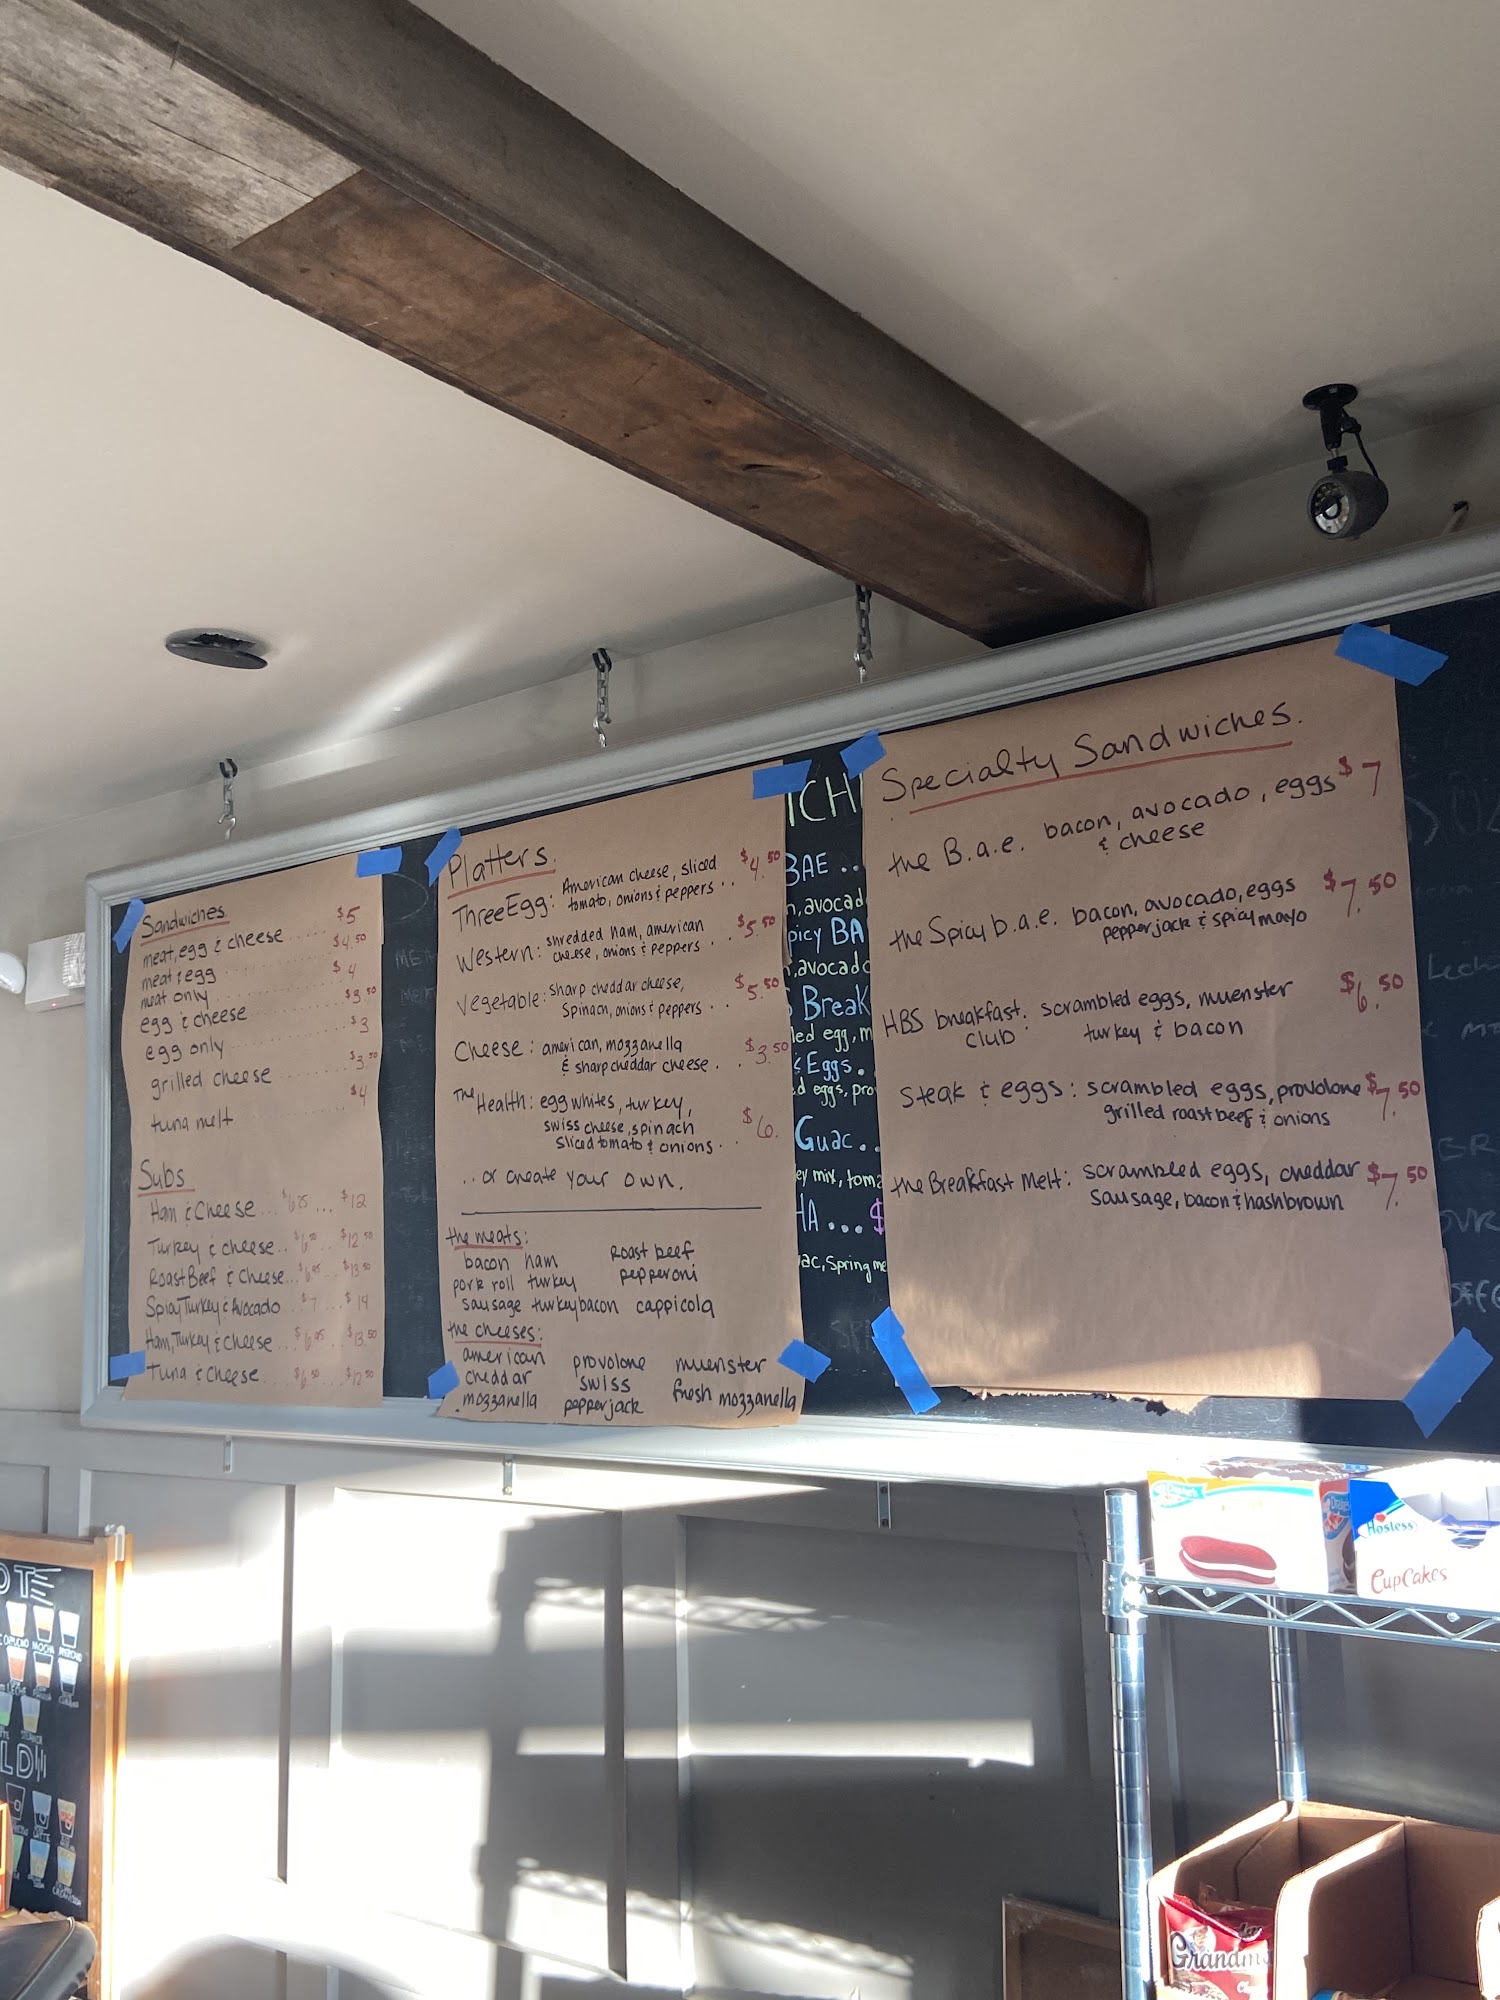 Sandwiches
meat, egg & cheese ...... $5
meat & egg ...... $4.50
meat only ...... $4
egg & cheese ...... $3.50
egg only ...... $3
grilled cheese ...... $3.50
tuna melt ...... $4
Subs
Ham & Cheese ... ... $12
Turkey & Cheese .. $6.50 ... $12.50
Roast Beef & Cheese ... $6.95 ... $13.50
Spicy Turkey & Avocado .. $7 ... $14
Ham, Turkey & Cheese ... $6.95 ... $13.50
Tuna & Cheese ... $6.50 ... $12.50
Platters
Three Egg: American cheese, sliced
tomato, onions & peppers .. $4.50
Western: shredded ham, american
cheese, onions & peppers .. $5.50
Vegetable: sharp cheddar cheese,
Spinach, onions & peppers .. $5.50
Cheese: american, mozzanella
& sharp cheddar cheese .. $3.50
The Health: egg whites, turkey,
swiss cheese, spinach
sliced tomato & onions .. $6.
... or create your own.
the meats:
bacon ham Roast beef
pork roll turkey pepperoni
sausage turkey bacon cappicola
the cheeses:
american provolone muenster
cheddar swiss fresh mozzanella
mozzanella pepperjack
ICH
BAE ...
avocad
picy BA
avocado
Break
led egg, m
& Eggs.
ed eggs, pro
Guac..
ey mix, toma
HA ... $
uac, Spring me
Specialty Sandwiches.
the B.a.e. bacon, avocado, eggs $7
& cheese
the Spicy b.a.e. bacon, avocado, eggs $7.50
pepperjack & spicy mayo
HBS breakfast club: scrambled eggs, muenster $6.50
turkey & bacon
Steak & eggs: scrambled eggs, provolone $7.50
grilled roast beef & onions
the Breakfast Melt: scrambled eggs, cheddar $7.50
sausage, bacon & hashbrown
Drake's
Hostess
CupCakes
Grandma
OT
MOCHA
LD